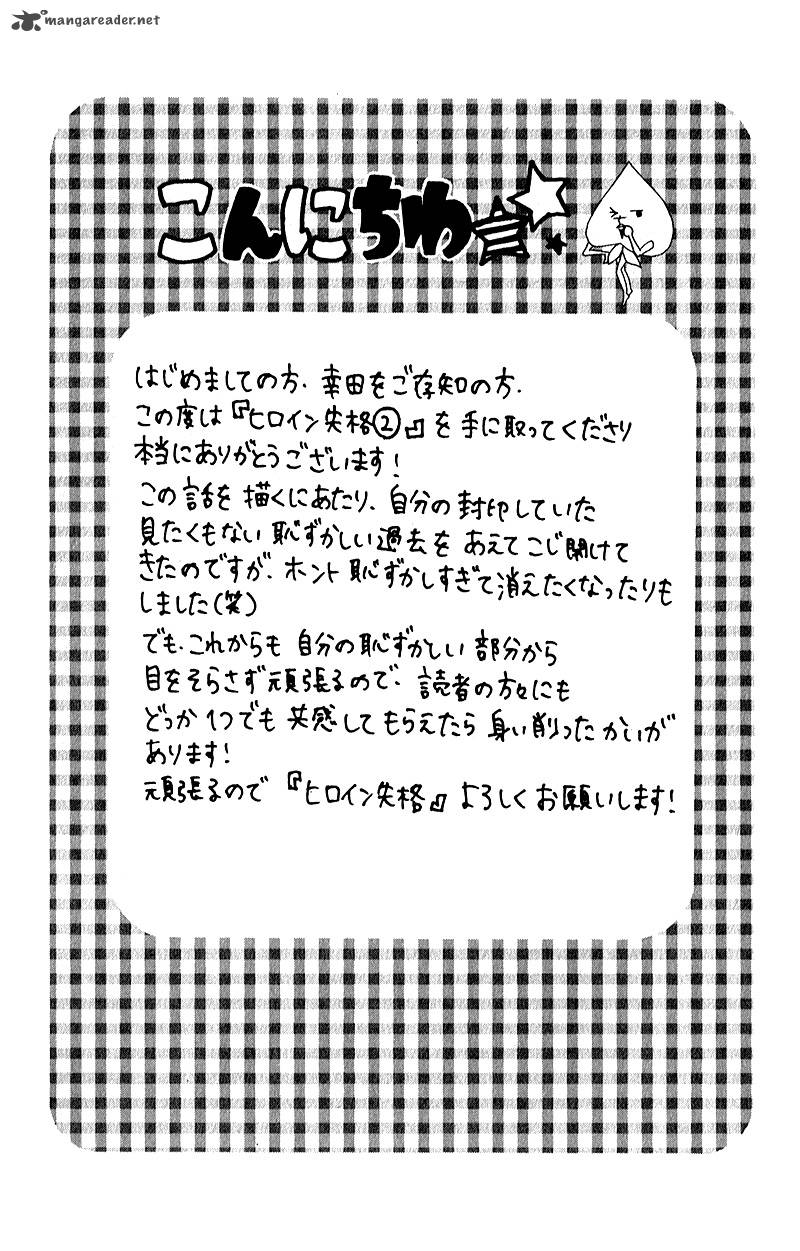 mangareader.net
こんにちわ
はじめましての方、幸田をご存知の方、
この度は『ヒロイン失格②』を手に取ってくださり
本当にありがとうございます!
この話を描くにあたり、自分の封印していた
見たくもない恥ずかしい過去をあえてこじ開けて
きたのですが、ホント恥ずかしすぎて消えたくなったりも
しました(笑)
でも、これからも自分の恥ずかしい部分から
目をそらさず頑張るので、読者の方々にも
どっか1つでも共感してもらえたら身い削ったかいが
あります!
頑張るので『ヒロイン失格』よろしくお願いします!